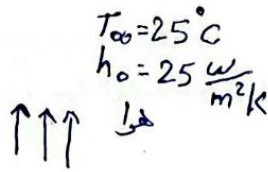 T∞ = 25°C
h₀ = 25 W/m²K
هوا